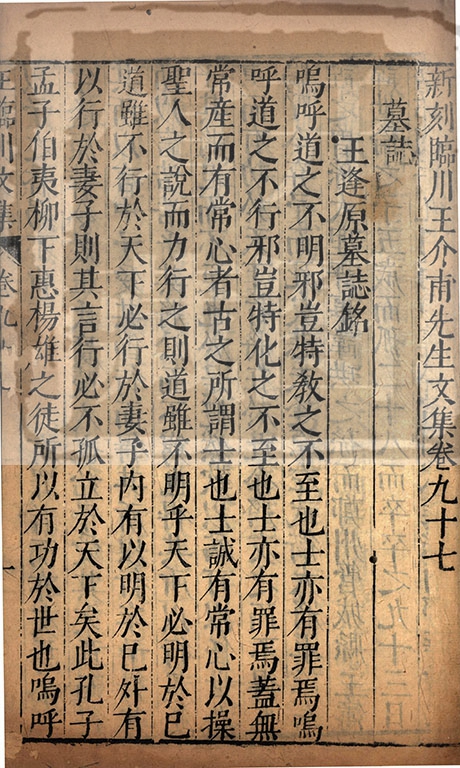 新刻臨川王介甫先生文集卷九十七
墓誌
王逢原墓誌銘
嗚呼道之不明邪豈特教之不至也士亦有罪焉嗚
呼道之不行邪豈特化之不至也士亦有罪焉蓋無
常産而有常心者古之所謂士也士誠有常心以操
聖人之說而力行之則道雖不明乎天下必明於已
道雖不行於天下必行於妻子内有以明於已外有
以行於妻子則其言行必不孤立於天下矣此孔子
孟子伯夷柳下惠楊雄之徒所以有功於世也嗚呼
王臨川文集 卷九十